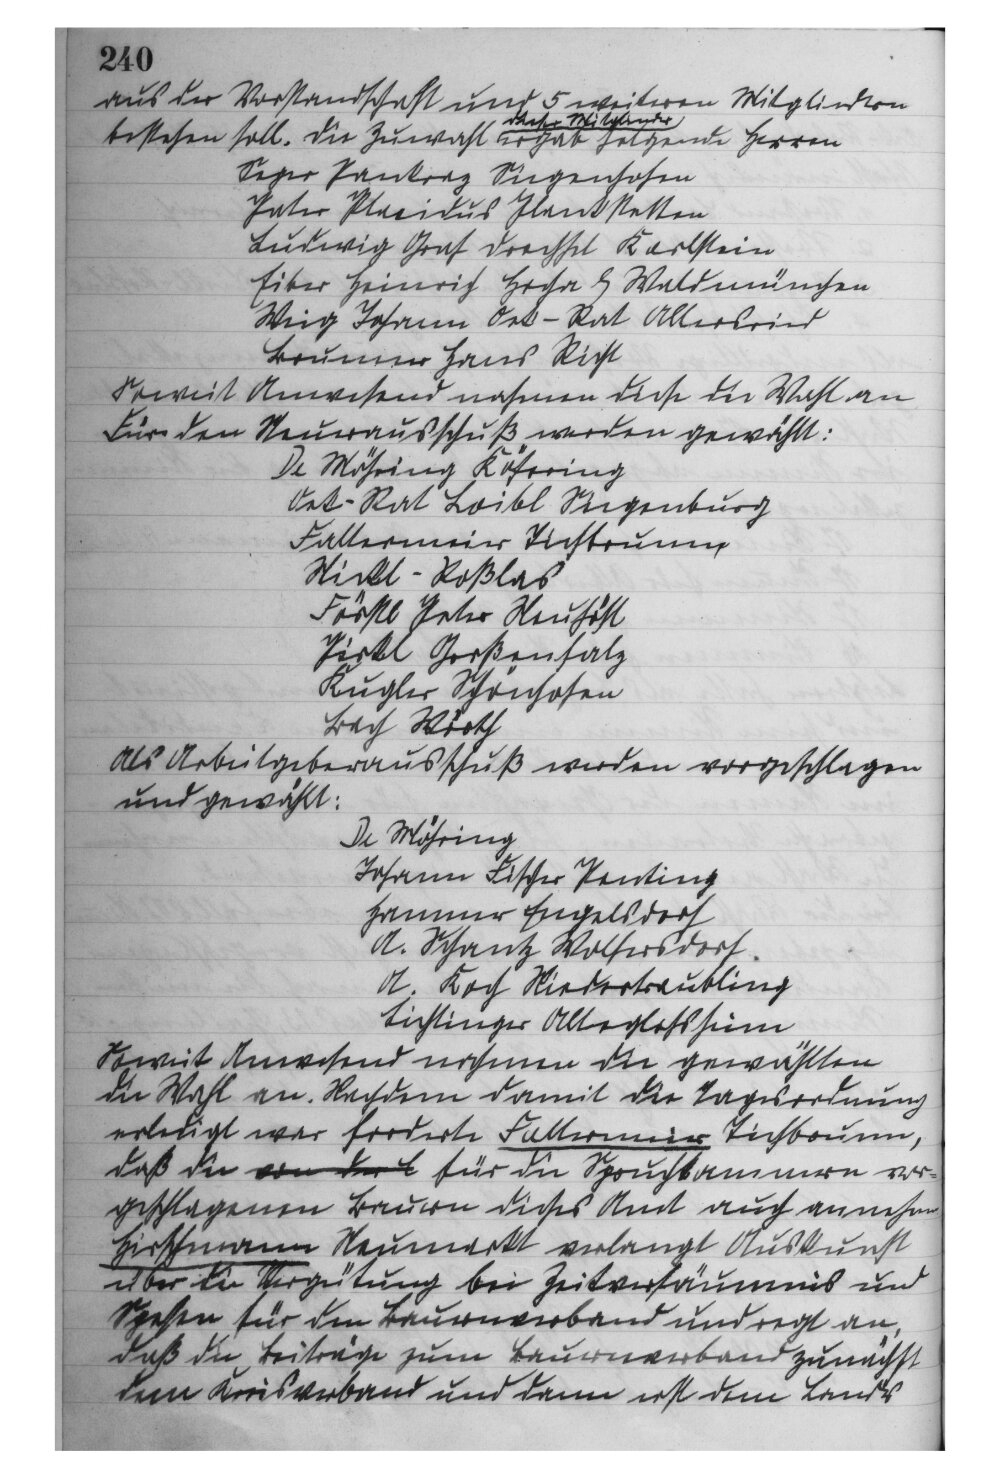 240
aus der Vorstandschaft und 5 weiteren Mitgliedern
dieser Mitglieder
bestehen soll. Die Zuwahl ergab folgende Herren
Seger Pankraz Siegenhofen
Pater Plazidus Plankstetten
Ludwig Graf Drechsel Karlstein
Eiber Heinrich Hocha b/ Waldmünchen
Weig Johann Oek-Rat Altersried
Brunner Hans Richt
Soweit Anwesend nahmen diese die Wahl an
Für den Steuerausschuß werden gewählt:
De Möhring Köfering
Oek-Rat Loibl Siegenburg
Fallermeier Tiefbrunn
Nickl-Roßlas
Förstl Peter Neuhöfl
Pirkl Großenfalz
Kugler Schönhofen
Bach Wörth
Als Arbeitgeberausschuß werden vorgeschlagen
und gewählt:
De Möhring
Johann Fischer Penting
Hammer Engelsdorf
A. Schantz Wolfersdorf.
A. Koch Niedertraubling
Eichlinger Alteglofsheim
Soweit Anwesend nahmen die gewählten
die Wahl an. Nachdem damit die Tagesordnung
erledigt war forderte Fallermeier Tiefbrunn,
daß die von der für die Spruchkammern vor-
geschlagenen Bauern dieses Amt auch annehmen
Hirschmann Neumarkt verlangt Auskunft
über die Vergütung bei Zeitversäumnis und
Spesen für den Bauernverband und regt an,
daß die Beiträge zum Bauernverband zunächst
dem Kreisverband und dann erst dem Landes